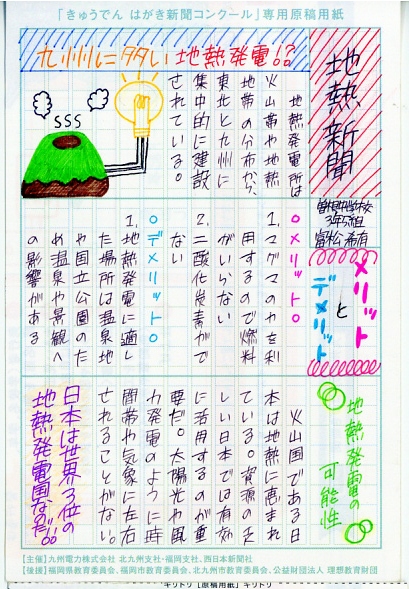 「きゅうでん はがき新聞コンクール」専用原稿用紙
地熱新聞
九州に多い地熱発電!?
地熱発電は
火山帯や地熱
地帯の分布から、
東北と九州に
集中的に建設
されている。
3年5組
メリット
と
デメリット
○メリット○
1、マグマの火を利
用するので燃料
がいらない
2、二酸化炭素がで
ない
○デメリット○
1、地熱発電に適し
た場所は温泉
や国立公園のた
め温泉や景観へ
の影響がある
地熱発電の
可能性
火山国である日
本は地熱に恵まれ
ている。資源の乏
しい日本では有効
に活用するのが重
要だ。太陽光や風
力発電のように時
間帯や気象に左右
されることがない。
日本は世界3位の
地熱発電国なのだ!!
【主催】九州電力株式会社 北九州支社・福岡支社、西日本新聞社
【後援】福岡県教育委員会、福岡市教育委員会、北九州市教育委員会、公益財団法人 理想教育財団
キリトリ【原稿用紙】キリトリ